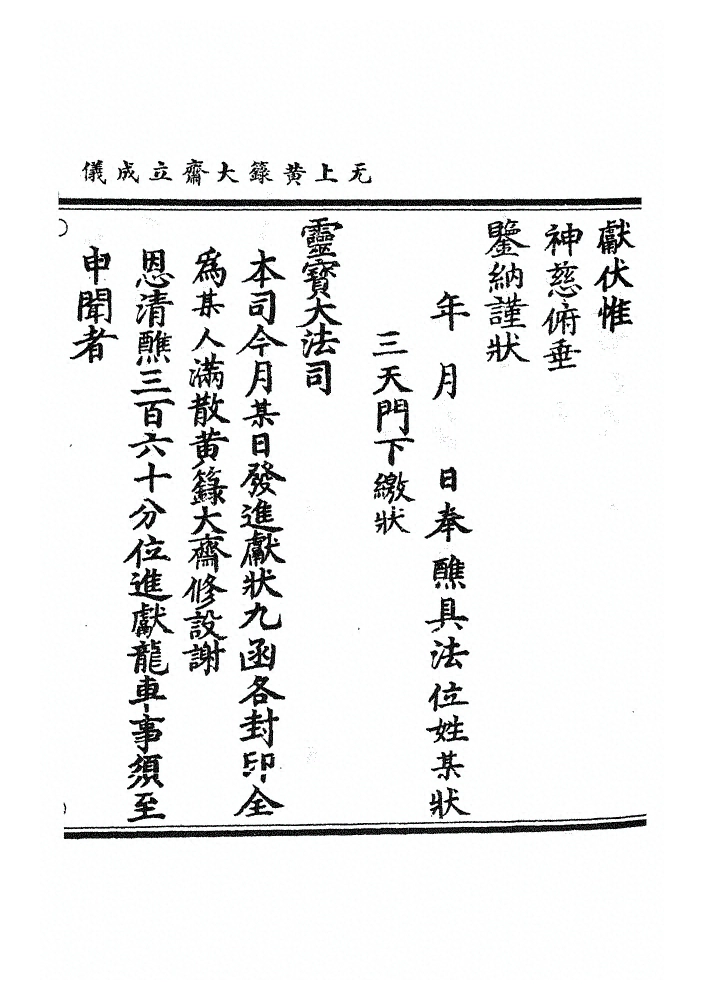 无上黄籙大齋立成儀
獻伏惟
神慈俯垂
鑒納謹狀
年　月　日奉醮具法位姓某狀
三天門下繳狀
靈寶大法司
本司今月某日發進獻狀九函各封印全
爲某人滿散黄籙大齋修設謝
恩清醮三百六十分位進獻龍車事須至
申聞者